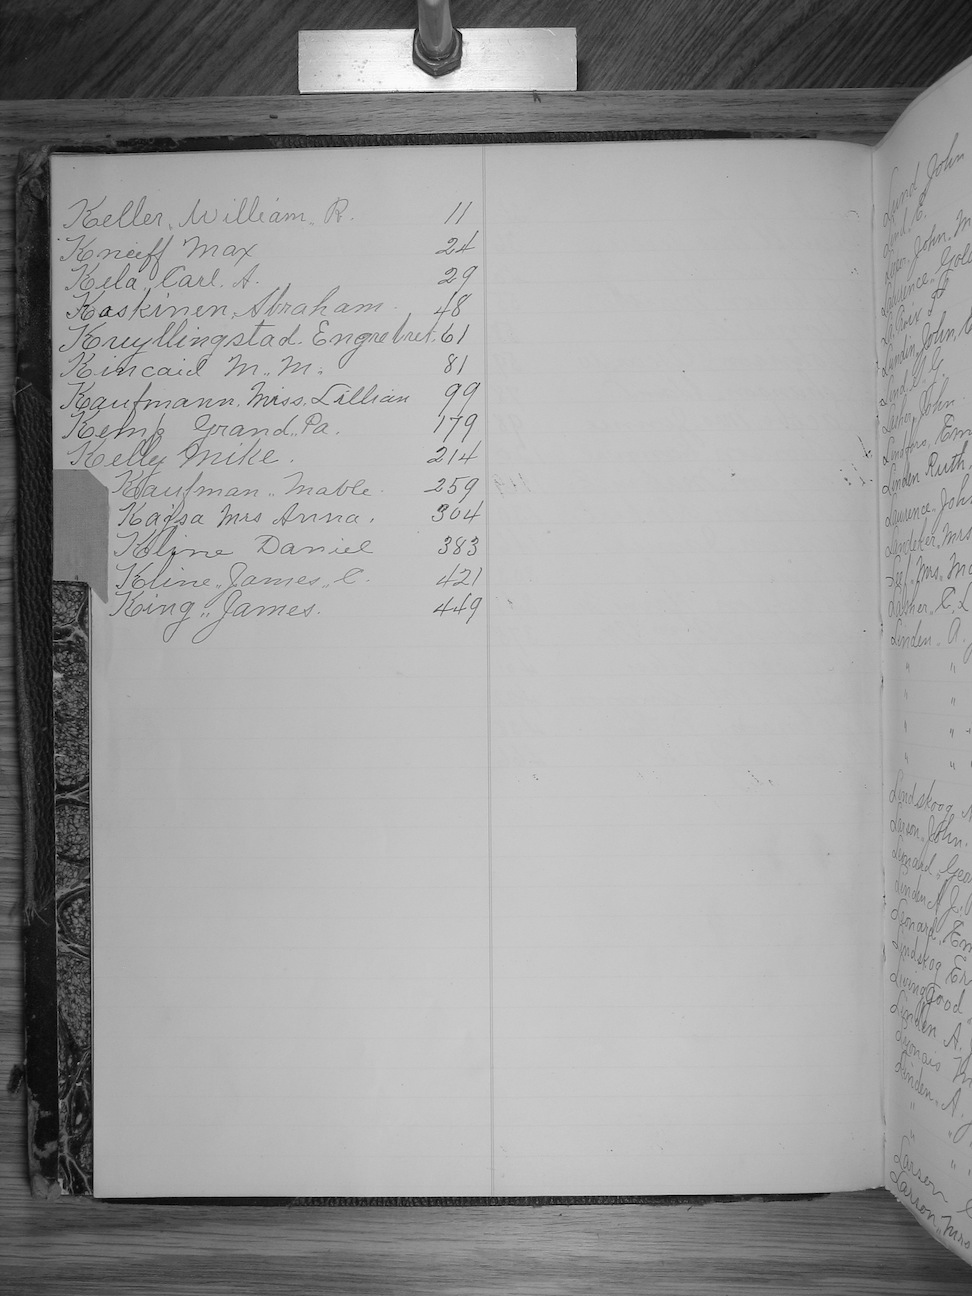 Keller, William, R. 11
Kneiff Max 24
Kela, Carl. A. 29
Koskinen, Abraham. 48
Kruyllingstad. Engrebret. 61
Kincaid M. M. 81
Kaufmann, Miss, Lillian 99
Kemp Grand, Pa. 179
Kelly Mike. 214
Kaufman, Mable. 259
Kajsa Mrs Anna. 304
Kline Daniel 383
Kline, James, C. 421
King, James. 449
Lund John
Lind, C.
John, M
Laurence, Gole
LaCroix
Lundin, John,
Lind, G. G.
John.
Lindfors, Em
Linden Ruth,
Laurence, John
Landeker, Mrs
Mrs. Ma
C. L
Linden, A.
" "
" "
" "
" "
Lindskoog,
Larson, John.
Leonard, Geo
J.
Leonard, Em
Lindskog Er
Livingood
Linden A. J
Lyonais
Linden, A. J
" "
" "
Larson
Larson, Mrs